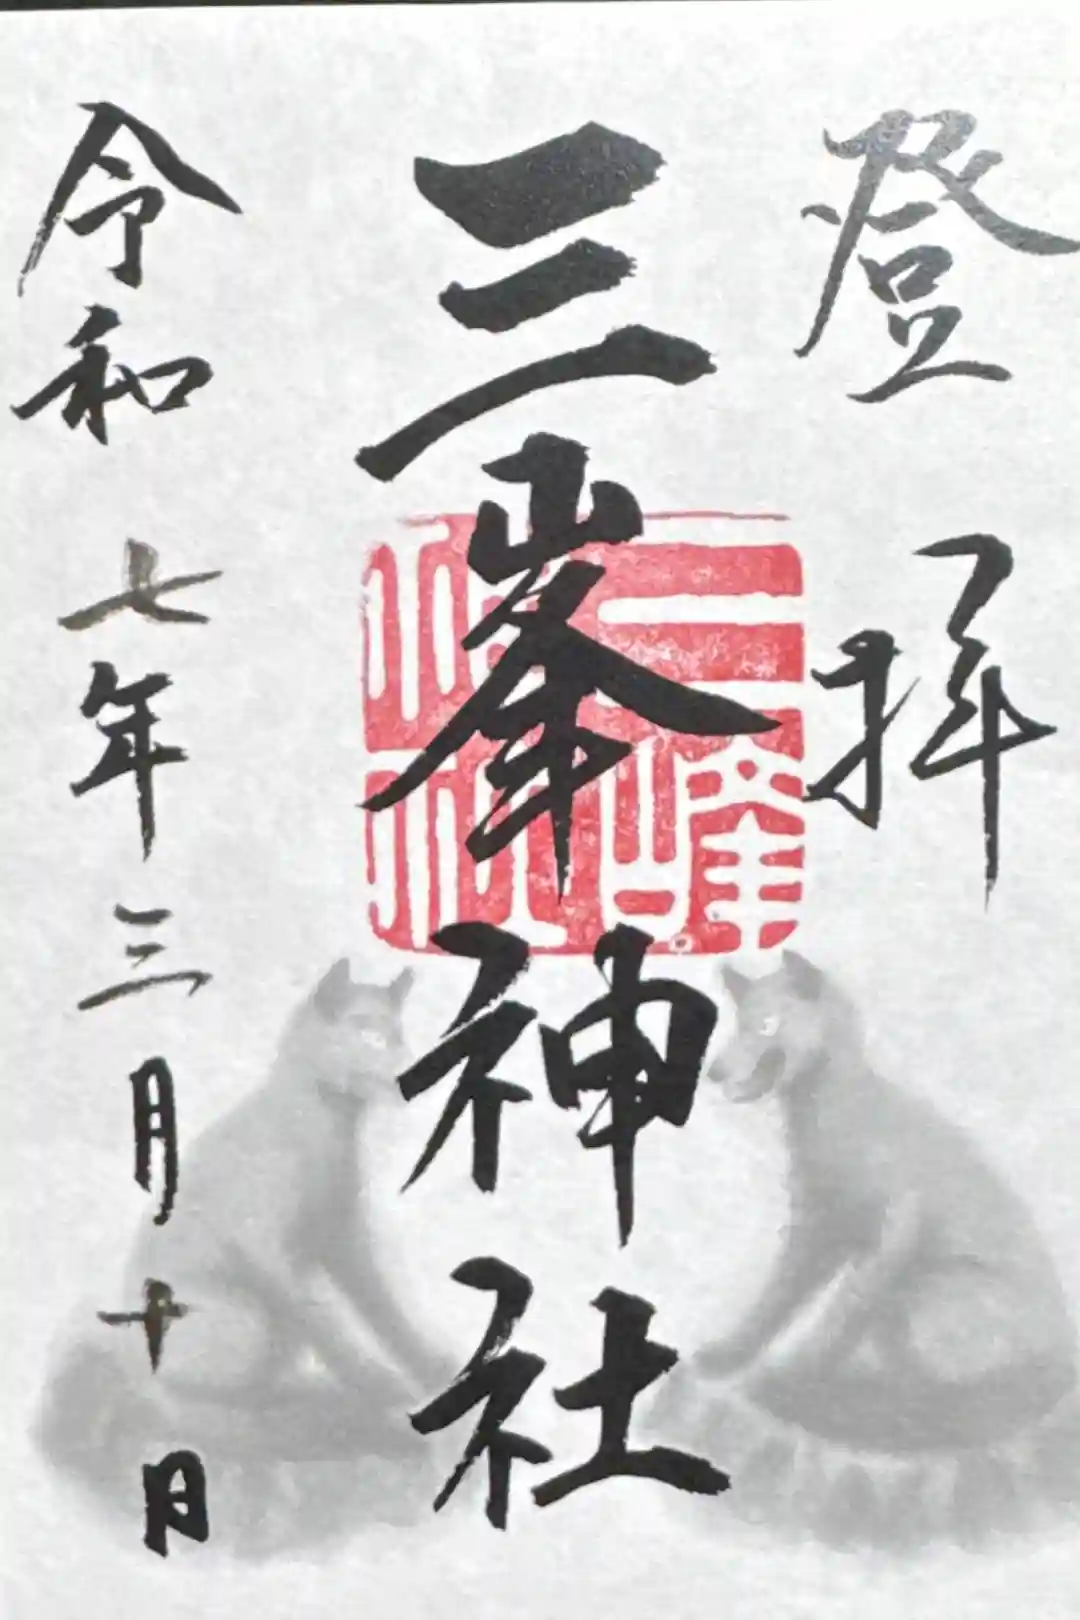 登拝
三峯神社
三峰神社
令和七年三月十日